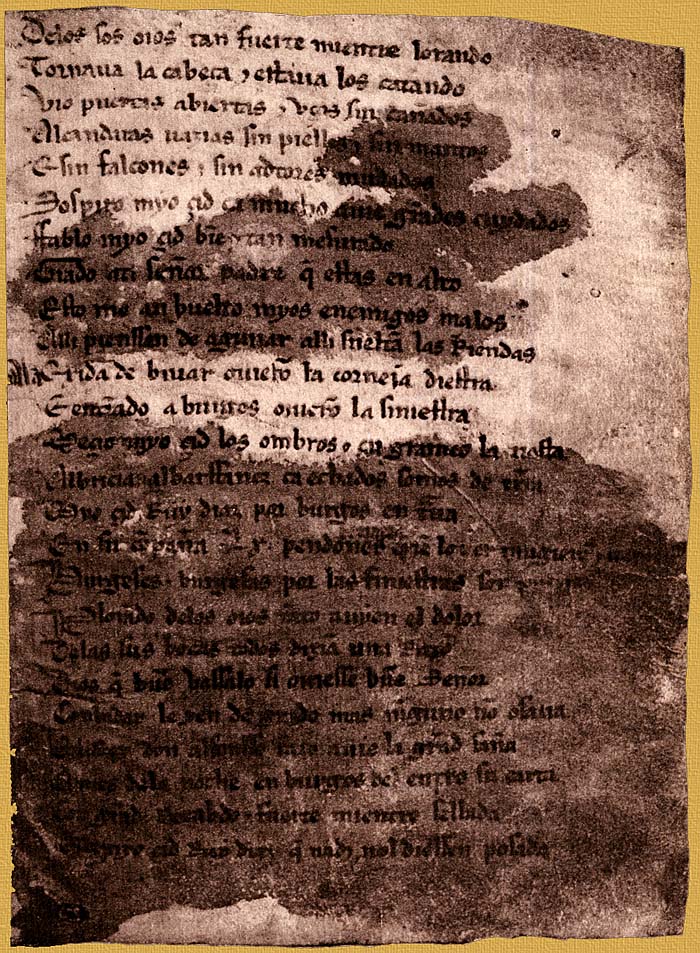 Delos sos oios tan fuerte mientre lorando
Tornaua la cabeça ⁊ estaua los catando
Vio puertas abiertas ⁊ vços sin cañados
Alcandaras uazias sin pielles ⁊ sin mantos
E sin falcones ⁊ sin adtores mudados
Sospiro myo çid ca mucho auie grãdes cuydados
Fablo myo çid biẽ ⁊ tan mesurado
Grado ati señor padre q̃ estas en alto
Esto me an buelto myos enemigos malos
Alli pienssan de aguijar alli sueltã las Riendas
Ala Exida de biuar ouierõ la corneja diestra
E entrãdo a burgos ouierõ la siniestra
Meçio myo çid los ombros ⁊ engrameo la tiesta
Albricia albarffanez ca echados somos de trr̃a
Myo çid Ruy diaz por burgos en traua
En su cõpaña .Lx. pendones
Burgeses ⁊ burgesas por las finiestras son
Plorãdo delos oios tãto auyen el dolor
Delas sus bocas todos dizia una Razo
Dios q̃ buẽ vassalo si ouiesse buẽ Señor
Conbidar le yen de grado mas ninguno nõ osaua
don alfonsso tãto auie la grãd saña
Antes dela noche en burgos del entro su carta
Con grãd Recabdo ⁊ fuerte mientre sellada
çid Ruy diaz q̃ nadi nol diessen posada